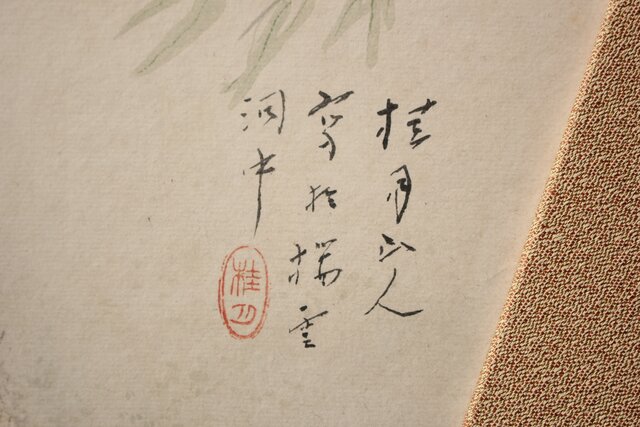 桂月山人
写於瑞雲
洞中
桂月